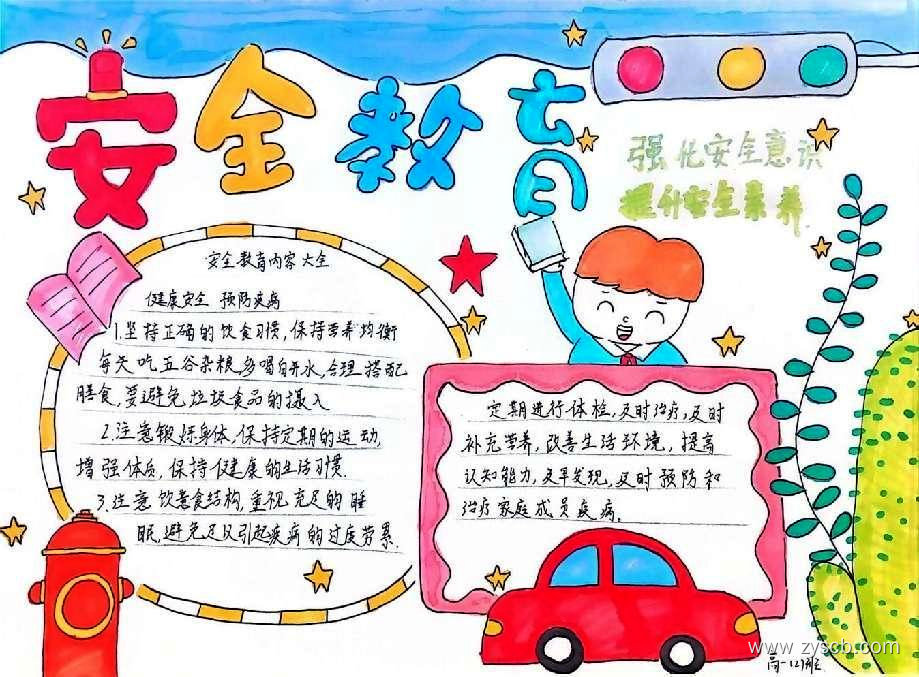 安全教育
强化安全意识
提升安全素养
安全教育内容大全
健康安全 预防疾病
1.坚持正确的饮食习惯,保持营养均衡
每天吃五谷杂粮,多喝白开水,合理搭配
膳食,要避免垃圾食品的摄入
2.注意锻炼身体,保持定期的运动,
增强体质,保持健康的生活习惯.
3.注意饮食结构,重视充足的睡
眠,避免足以引起疾病的过度劳累.
定期进行体检,及时治疗,及时
补充营养,改善生活环境,提高
认知能力,及早发现,及时预防和
治疗家庭成员疾病.
www.zyscb.com
高一(2)班